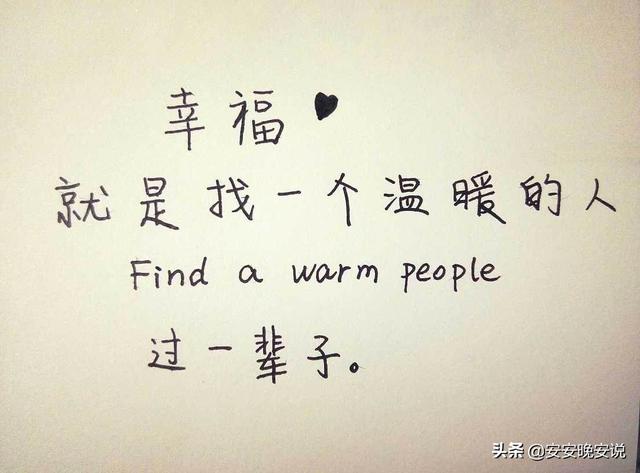 幸福♥
就是找一个温暖的人
Find a warm people
过一辈子。
头条 @安安晚安说